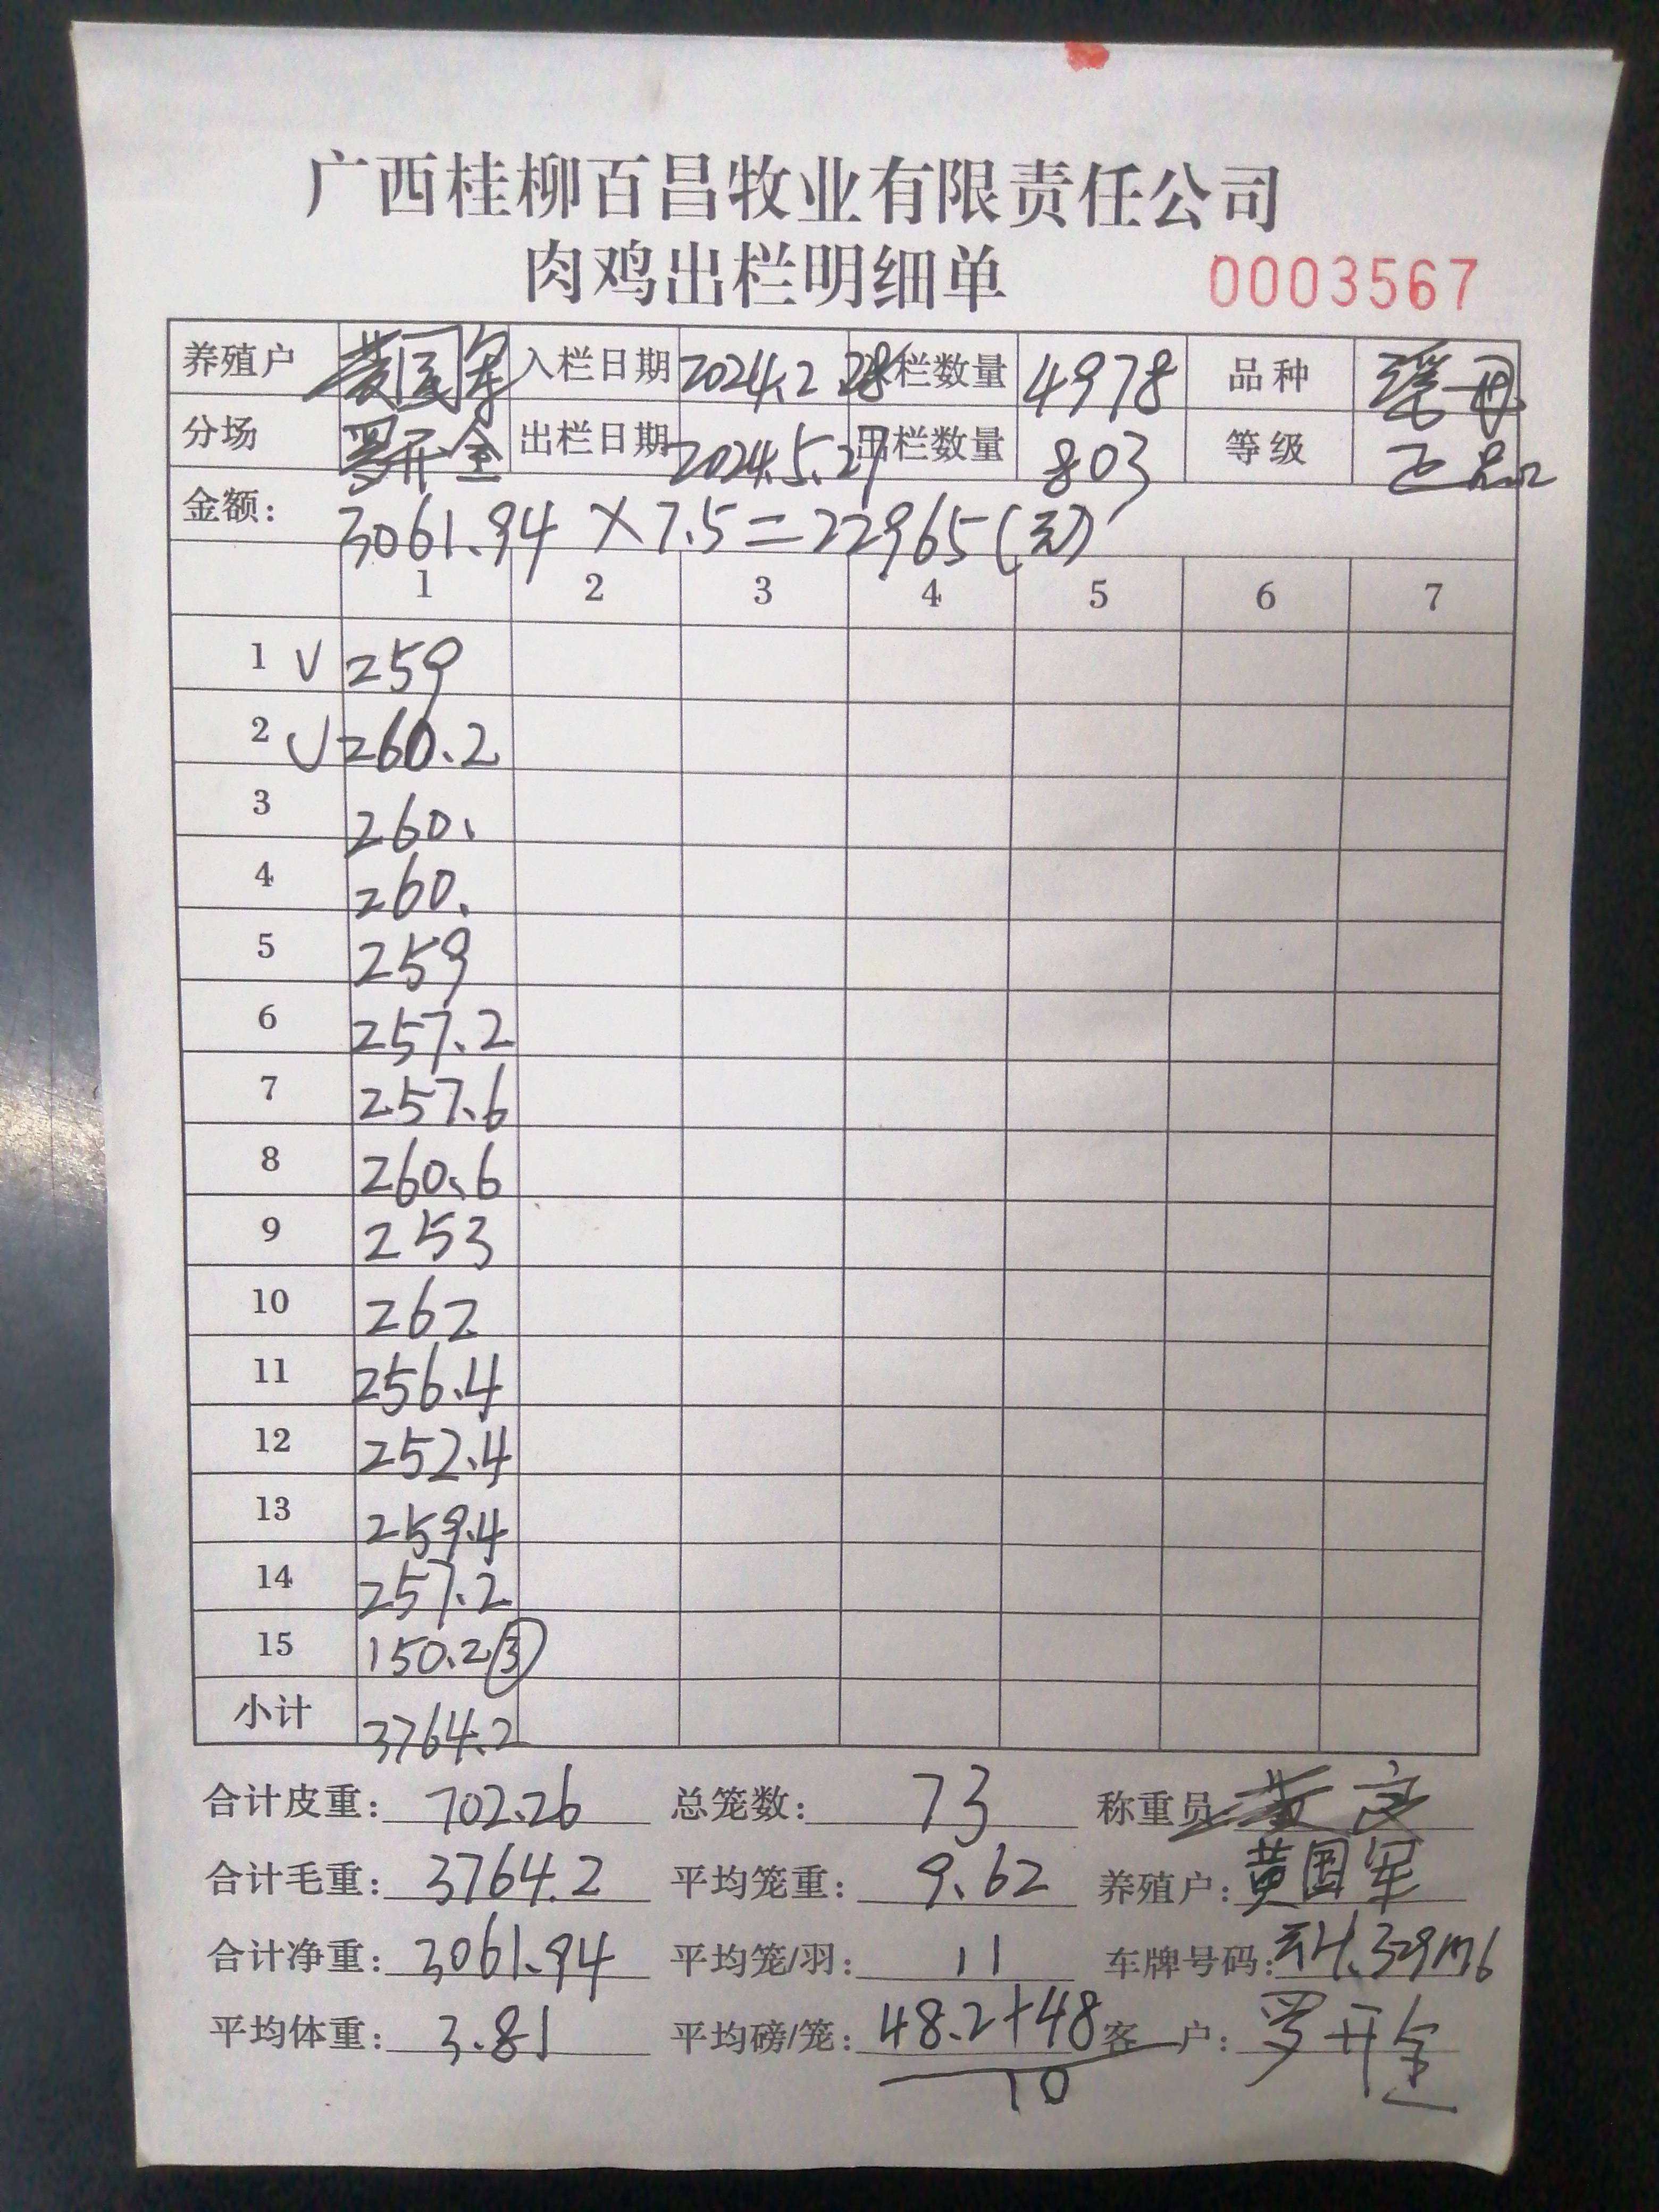 广西桂柳百昌牧业有限责任公司
肉鸡出栏明细单 0003567
养殖户 黄国军 入栏日期 2024.2.28 入栏数量 4978 品种 瑶母
分场 罗开金 出栏日期 2024.5.27 出栏数量 803 等级 正品
金额: 3061.94×7.5=22965(元)
1 2 3 4 5 6 7
1 V 259
2 V 260.2
3 260.
4 260.
5 259
6 257.2
7 257.6
8 260.6
9 253
10 262
11 256.4
12 252.4
13 259.4
14 257.2
15 150.2③
小计 3764.2
合计皮重: 702.26 总笼数: 73 称重员
合计毛重: 3764.2 平均笼重: 9.62 养殖户: 黄国军
合计净重: 3061.94 平均笼/羽: 11 车牌号码: 云H.329M6
平均体重: 3.81 平均磅/笼: 48.2+48 客 户: 罗开金
10